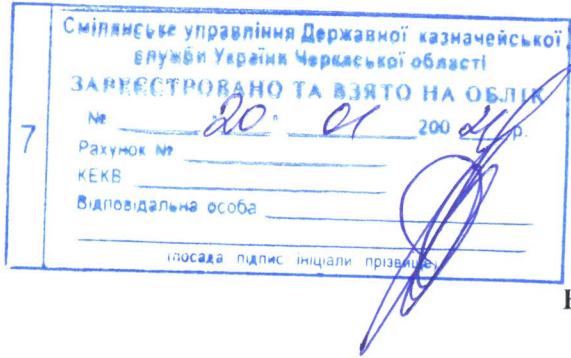 Смілянське управління Державної казначейської
служби України Черкаської області
ЗАРЕЄСТРОВАНО ТА ВЗЯТО НА ОБЛІК
7
№ "20" 01 200 р.
Рахунок №
КЕКВ
Відповідальна особа
(посада підпис ініціали прізвище)